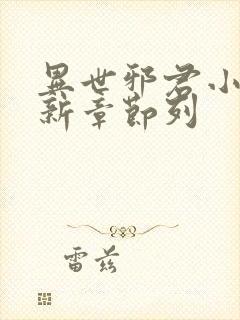 異世邪君小
新章節列
雷茲